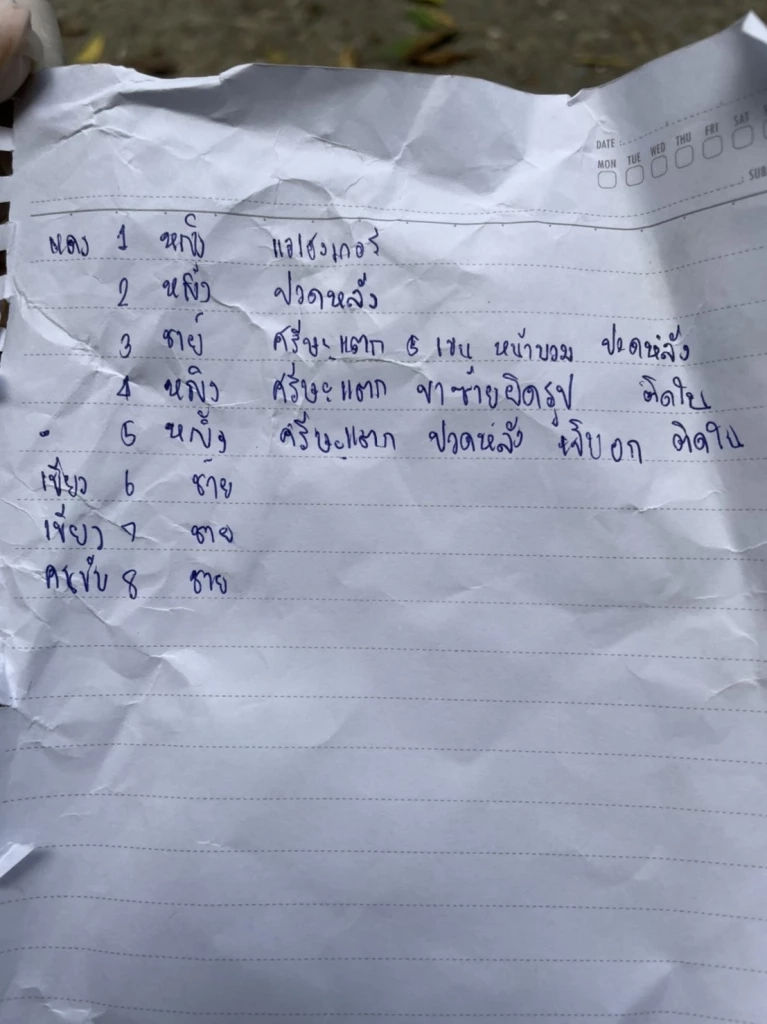 DATE
MON TUE WED THU FRI SAT
SUB
แดง 1 หญิง
2 หญิง ปวดหลัง
3 ชาย ศรีษะแตก 5 เซน หน้าบวม ปวดหลัง
4 หญิง ศรีษะแตก ขาซ้ายผิดรูป ติดใน
5 หญิง ศรีษะแตก ปวดหลัง อก ติดใน
เขียว 6 ชาย
เขียว 7 ชาย
คนขับ 8 ชาย